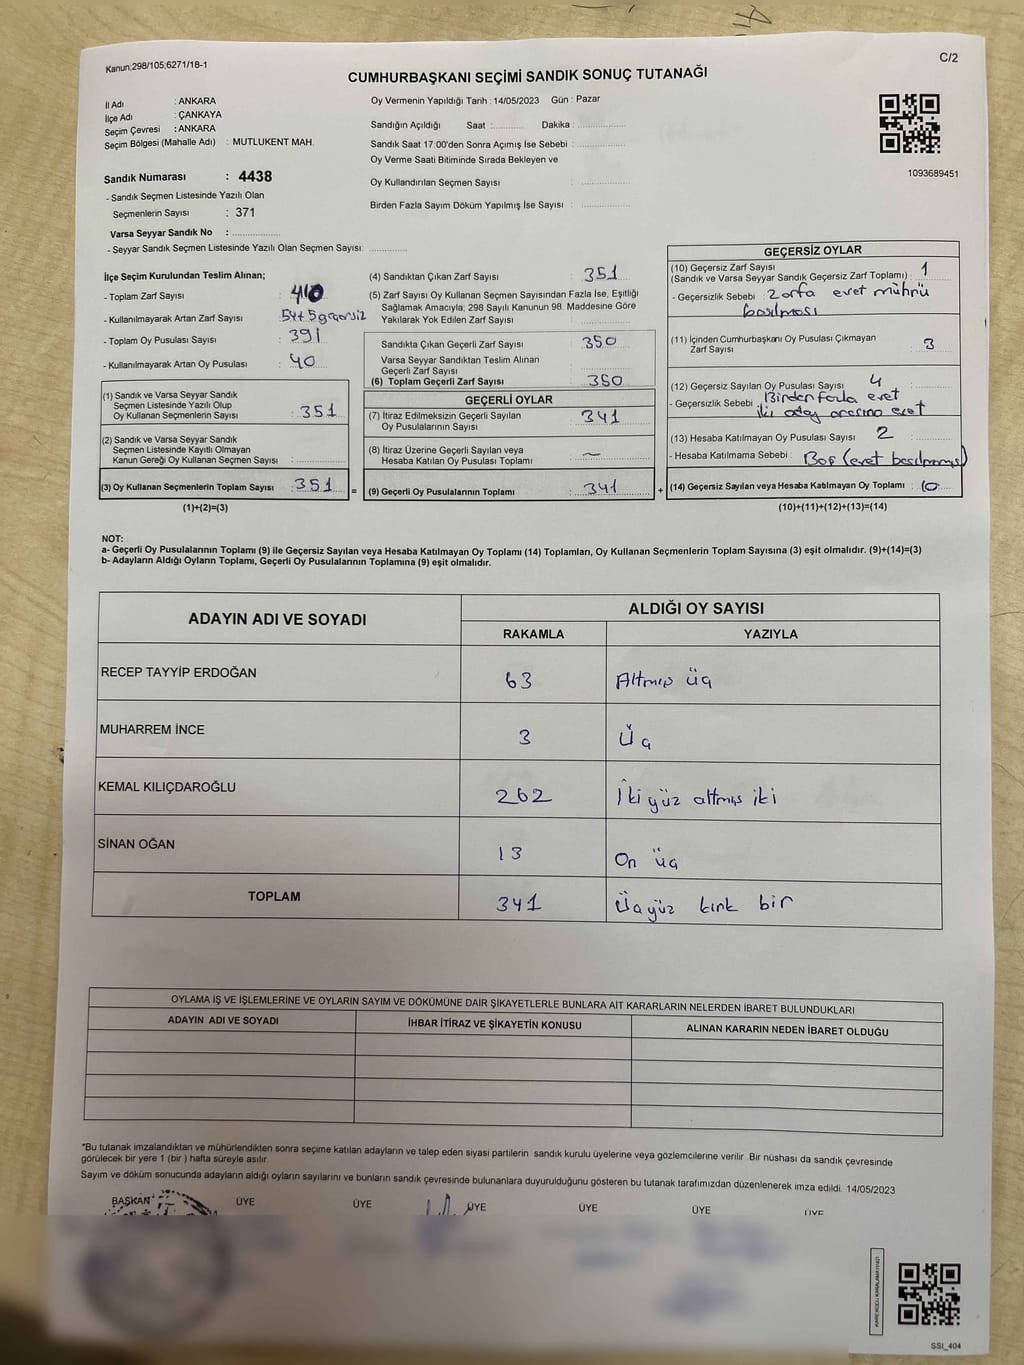 Kanun:298/105;6271/18-1
C/2
CUMHURBAŞKANI SEÇİMİ SANDIK SONUÇ TUTANAĞI
İl Adı : ANKARA
İlçe Adı : ÇANKAYA
Seçim Çevresi : ANKARA
Seçim Bölgesi (Mahalle Adı) : MUTLUKENT MAH.
Oy Vermenin Yapıldığı Tarih : 14/05/2023 Gün : Pazar
Sandığın Açıldığı Saat :........... Dakika :................
Sandık Saat 17:00'den Sonra Açımış İse Sebebi :................
Oy Verme Saati Bitiminde Sırada Bekleyen ve
Oy Kullandırılan Seçmen Sayısı :................
Birden Fazla Sayım Döküm Yapılmış İse Sayısı :................
1093689451
Sandık Numarası : 4438
- Sandık Seçmen Listesinde Yazılı Olan
Seçmenlerin Sayısı : 371
Varsa Seyyar Sandık No :................
- Seyyar Sandık Seçmen Listesinde Yazılı Olan Seçmen Sayısı: .............
İlçe Seçim Kurulundan Teslim Alınan;
- Toplam Zarf Sayısı : 410
- Kullanılmayarak Artan Zarf Sayısı : 54+5 geçersiz
- Toplam Oy Pusulası Sayısı : 391
- Kullanılmayarak Artan Oy Pusulası : 40
(1) Sandık ve Varsa Seyyar Sandık
Seçmen Listesinde Yazılı Olup
Oy Kullanan Seçmenlerin Sayısı : 351
(2) Sandık ve Varsa Seyyar Sandık
Seçmen Listesinde Kayıtlı Olmayan
Kanun Gereği Oy Kullanan Seçmen Sayısı :................
(3) Oy Kullanan Seçmenlerin Toplam Sayısı : 351 =
(1)+(2)=(3)
(4) Sandıktan Çıkan Zarf Sayısı : 351
(5) Zarf Sayısı Oy Kullanan Seçmen Sayısından Fazla İse, Eşitliği
Sağlamak Amacıyla, 298 Sayılı Kanunun 98. Maddesine Göre
Yakılarak Yok Edilen Zarf Sayısı :................
Sandıkta Çıkan Geçerli Zarf Sayısı : 350
Varsa Seyyar Sandıktan Teslim Alınan
Geçerli Zarf Sayısı :................
(6) Toplam Geçerli Zarf Sayısı : 350
GEÇERLİ OYLAR
(7) İtiraz Edilmeksizin Geçerli Sayılan
Oy Pusulalarının Sayısı : 341
(8) İtiraz Üzerine Geçerli Sayılan veya
Hesaba Katılan Oy Pusulası Toplamı : ~
(9) Geçerli Oy Pusulalarının Toplamı : 341 +
GEÇERSİZ OYLAR
(10) Geçersiz Zarf Sayısı
(Sandık ve Varsa Seyyar Sandık Geçersiz Zarf Toplamı) : 1
- Geçersizlik Sebebi : Zarfa evet mührü
basılması
(11) İçinden Cumhurbaşkanı Oy Pusulası Çıkmayan
Zarf Sayısı : 3
(12) Geçersiz Sayılan Oy Pusulası Sayısı : 4
- Geçersizlik Sebebi : Birden fazla evet
iki aday arasına evet
(13) Hesaba Katılmayan Oy Pusulası Sayısı : 2
- Hesaba Katılmama Sebebi : Boş (evet basılmamış)
(14) Geçersiz Sayılan veya Hesaba Katılmayan Oy Toplamı : 10
(10)+(11)+(12)+(13)=(14)
NOT:
a- Geçerli Oy Pusulalarının Toplamı (9) ile Geçersiz Sayılan veya Hesaba Katılmayan Oy Toplamı (14) Toplamları, Oy Kullanan Seçmenlerin Toplam Sayısına (3) eşit olmalıdır. (9)+(14)=(3)
b- Adayların Aldığı Oyların Toplamı, Geçerli Oy Pusulalarının Toplamına (9) eşit olmalıdır.
ADAYIN ADI VE SOYADI
ALDIĞI OY SAYISI
RAKAMLA YAZIYLA
RECEP TAYYİP ERDOĞAN 63 Altmış üç
MUHARREM İNCE 3 Üç
KEMAL KILIÇDAROĞLU 262 İkiyüz altmış iki
SİNAN OĞAN 13 On üç
TOPLAM 341 Üçyüz kırk bir
OYLAMA İŞ VE İŞLEMLERİNE VE OYLARIN SAYIM VE DÖKÜMÜNE DAİR ŞİKAYETLERLE BUNLARA AİT KARARLARIN NELERDEN İBARET BULUNDUKLARI
ADAYIN ADI VE SOYADI İHBAR İTİRAZ VE ŞİKAYETİN KONUSU ALINAN KARARIN NEDEN İBARET OLDUĞU
*Bu tutanak imzalandıktan ve mühürlendikten sonra seçime katılan adayların ve talep eden siyasi partilerin sandık kurulu üyelerine veya gözlemcilerine verilir. Bir nüshası da sandık çevresinde
görülecek bir yere 1 (bir ) hafta süreyle asılır.
Sayım ve döküm sonucunda adayların aldığı oyların sayılarını ve bunların sandık çevresinde bulunanlara duyurulduğunu gösteren bu tutanak tarafımızdan düzenlenerek imza edildi. 14/05/2023
BAŞKAN ÜYE ÜYE ÜYE ÜYE ÜYE ÜYE
SSI_404